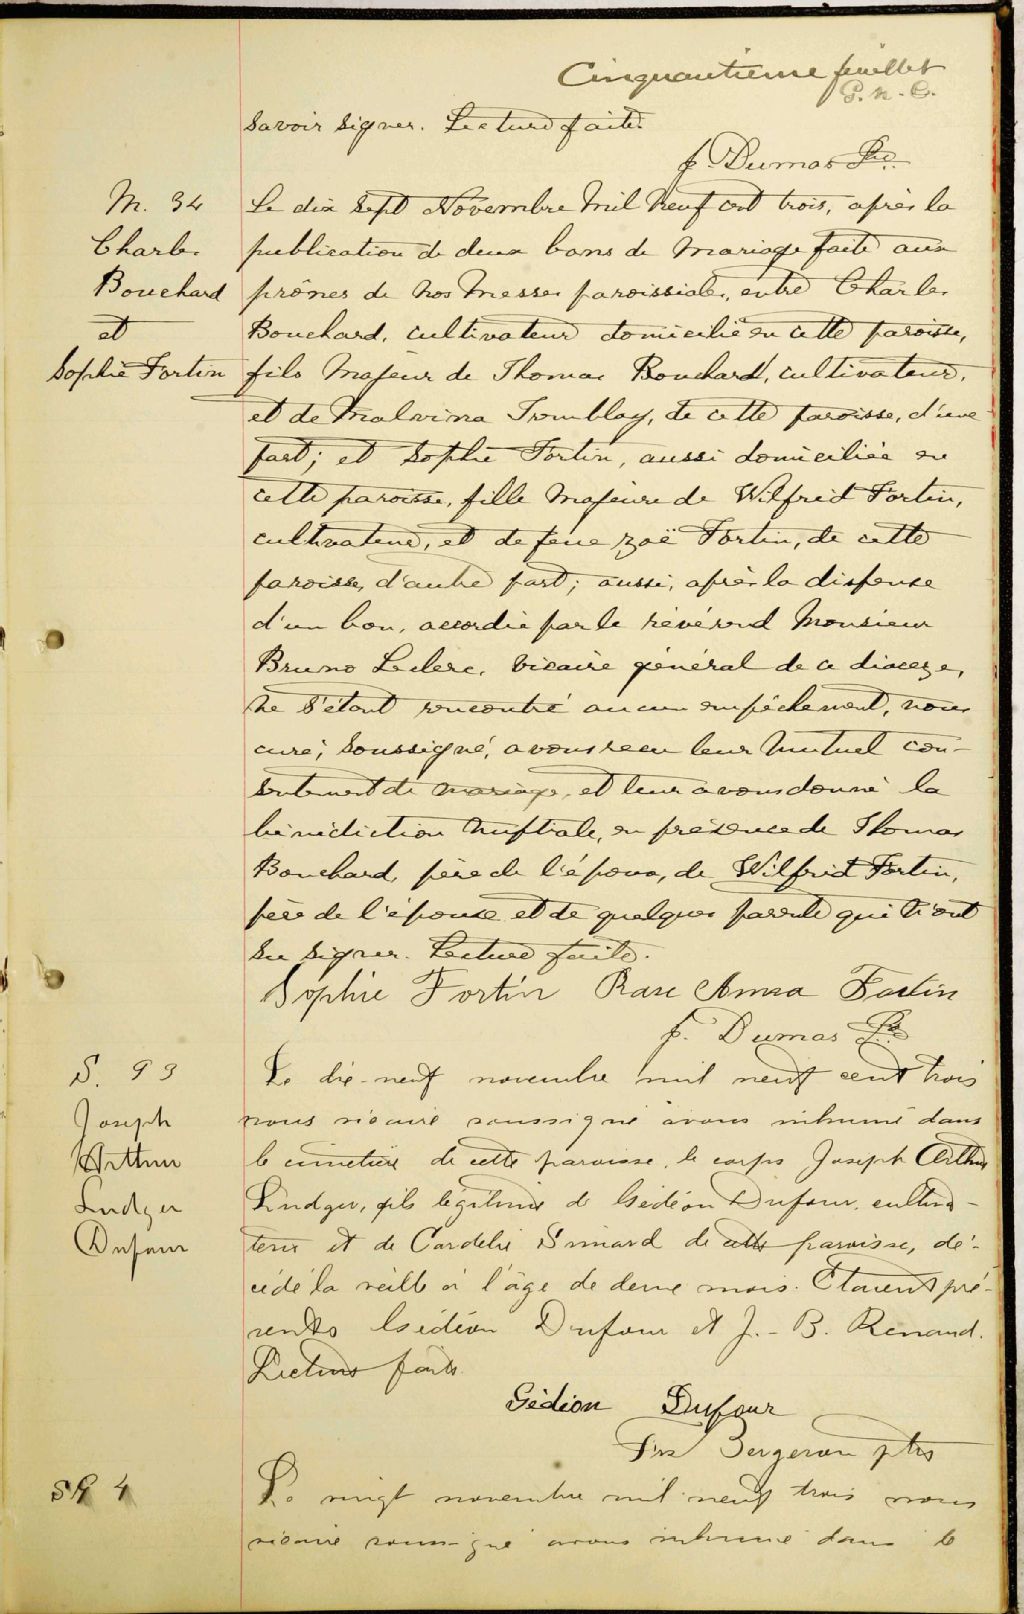 Cinquantième feuillet
P. N. C.
savoir signer. Lecture faite.
J. Dumas Ptre
M. 34
Charles
Bouchard
et
Sophie Fortin
Le dix sept Novembre Mil Neuf cent trois, après la
publication de deux bans de Mariage faite aux
prônes de nos Messes paroissiales, entre Charles
Bouchard, cultivateur domicilié en cette paroisse,
fils Majeur de Thomas Bouchard, cultivateur,
et de Malvina Tremblay, de cette paroisse, d'une
part; et Sophie Fortin, aussi domiciliée en
cette paroisse, fille Majeure de Wilfrid Fortin,
cultivateur, et de feue Zoë Fortin, de cette
paroisse, d'autre part; aussi, après la dispense
d'un ban, accordée par le révérend Monsieur
Bruno Leclerc, Vicaire général de ce diocèse,
ne s'étant rencontré aucun empêchement, nous
curé, soussigné, avons reçu leur Mutuel con-
sentement de mariage, et leur avons donné la
bénédiction Nuptiale, en présence de Thomas
Bouchard, père de l'époux, de Wilfrid Fortin,
père de l'épouse et de quelques parents qui n'ont
su signer. Lecture faite.
Sophie Fortin Rose Anna Fortin
J. Dumas Ptre
S. 93
Joseph
Arthur
Ludger
Dufour
Le dix-neuf novembre mil neuf cent trois
nous vicaire soussigné avons inhumé dans
le cimetière de cette paroisse, le corps Joseph Arthur
Ludger, fils légitime de Gédéon Dufour, cultiva-
teur et de Cordélie Simard de cette paroisse, dé-
cédé la veille à l'âge de deux mois. Étaient pré-
sents Gédéon Dufour et J.-B. Renaud.
Lecture faite.
Gédéon Dufour
Frs Bergeron ptre
S 94
Le vingt novembre mil neuf trois nous
vicaire soussigné avons inhumé dans le